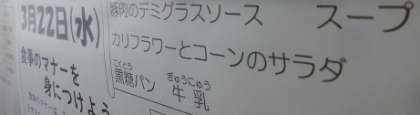 3月22日(水)
食事のマナーを
身につけよう
豚肉のデミグラスソース スープ
カリフラワーとコーンのサラダ
こくとう ぎゅうにゅう
黒糖パン 牛乳